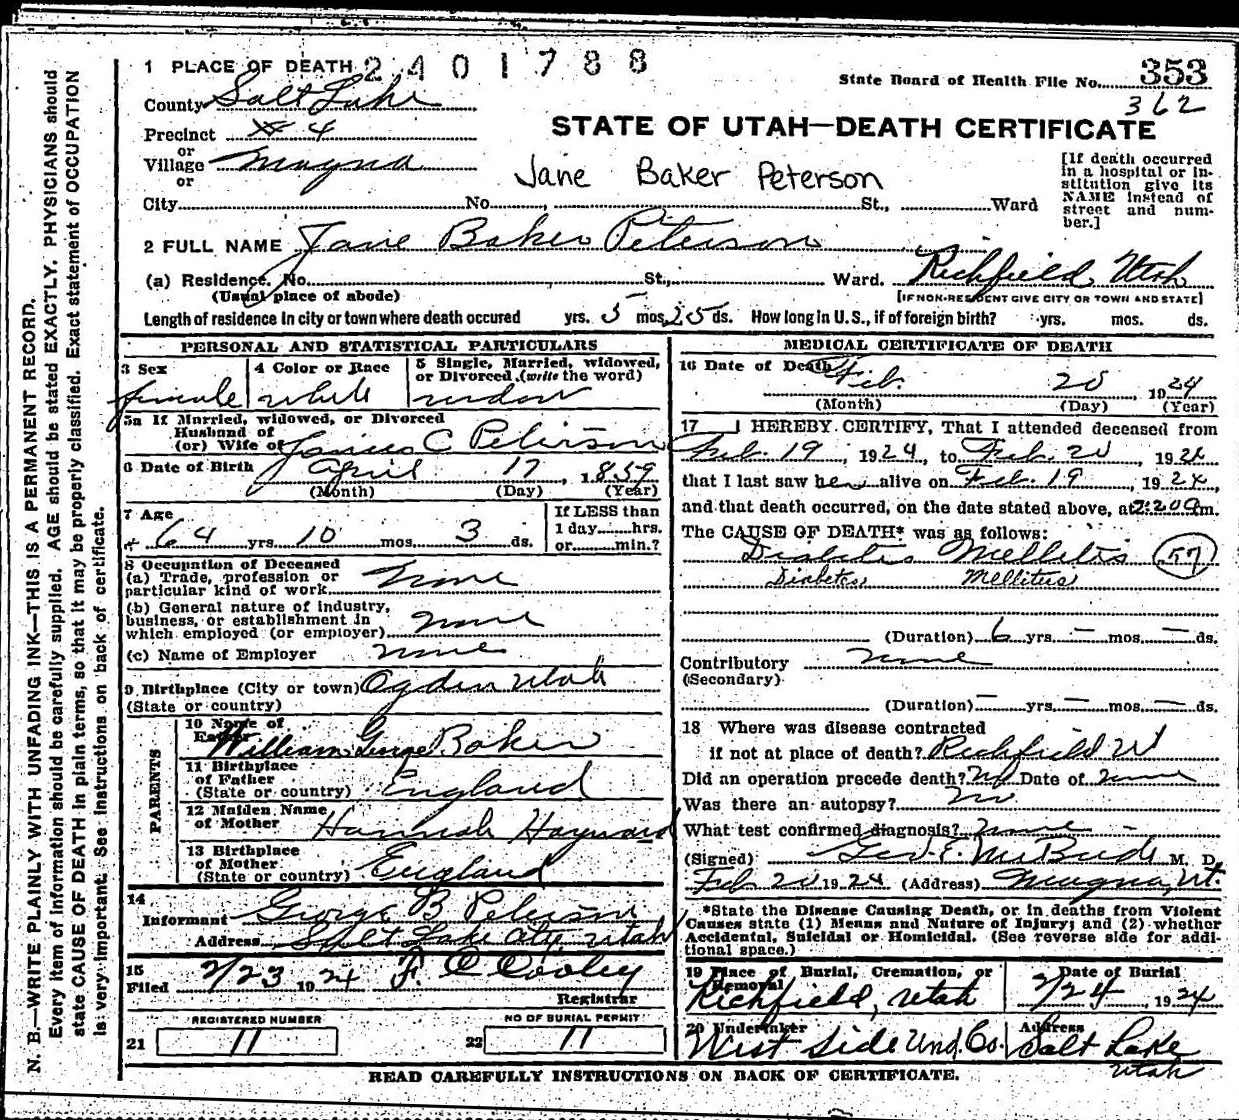 1 PLACE OF DEATH 2401788
State Board of Health File No. 353
362
County Salt Lake
Precinct # 4
or
Village Magna
or
STATE OF UTAH—DEATH CERTIFICATE
[If death occurred in a hospital or institution give its NAME instead of street and number.]
Jane Baker Peterson
City No. St., Ward
2 FULL NAME Jane Baker Peterson
(a) Residence. No. St., Ward. Richfield, Utah
(Usual place of abode) [IF NON-RESIDENT GIVE CITY OR TOWN AND STATE]
Length of residence in city or town where death occured yrs. 5 mos. 25 ds. How long in U.S., if of foreign birth? yrs. mos. ds.
PERSONAL AND STATISTICAL PARTICULARS
3 Sex 4 Color or Race 5 Single, Married, widowed, or Divorced (write the word)
female white widow
5a If Married, widowed, or Divorced
Husband of
(or) Wife of James C Peterson
6 Date of Birth April 17, 1859
(Month) (Day) (Year)
7 Age If LESS than
64 yrs. 10 mos. 3 ds. 1 day hrs.
or min.?
8 Occupation of Deceased
(a) Trade, profession or
particular kind of work None
(b) General nature of industry,
business, or establishment in
which employed (or employer) none
(c) Name of Employer none
9 Birthplace (City or town) Ogden Utah
(State or country)
PARENTS
10 Name of
Father William George Baker
11 Birthplace
of Father
(State or country) England
12 Maiden Name
of Mother Hannah Hayward
13 Birthplace
of Mother
(State or country) England
14
Informant George B Peterson
Address Salt Lake City, Utah
15
Filed 2/23 1924 F. C Cooley
Registrar
REGISTERED NUMBER NO OF BURIAL PERMIT
21 11 22 11
MEDICAL CERTIFICATE OF DEATH
16 Date of Death Feb. 20 1924
(Month) (Day) (Year)
17 I HEREBY CERTIFY, That I attended deceased from
Feb. 19, 1924, to Feb. 20, 1924
that I last saw her alive on Feb. 19, 1924,
and that death occurred, on the date stated above, at 2:20 am.
The CAUSE OF DEATH* was as follows:
Diabetis Mellitis 57
Diabetes Mellitus
(Duration) 6 yrs. — mos. — ds.
Contributory none
(Secondary)
(Duration) — yrs. — mos. — ds.
18 Where was disease contracted
if not at place of death? Richfield Ut
Did an operation precede death? No Date of none
Was there an autopsy? no
What test confirmed diagnosis? none
(Signed) Geo. E. McBride M. D.
Feb 20 1924 (Address) Magna, Ut.
*State the Disease Causing Death, or in deaths from Violent
Causes state (1) Means and Nature of Injury; and (2) whether
Accidental, Suicidal or Homicidal. (See reverse side for additional space.)
19 Place of Burial, Cremation, or Date of Burial
Removal
Richfield, Utah 2/24 1924
20 Undertaker Address
West Side Und. Co. Salt Lake
Utah
READ CAREFULLY INSTRUCTIONS ON BACK OF CERTIFICATE.
N. B.—WRITE PLAINLY WITH UNFADING INK—THIS IS A PERMANENT RECORD.
Every item of information should be carefully supplied. AGE should be stated EXACTLY. PHYSICIANS should
state CAUSE OF DEATH in plain terms, so that it may be properly classified. Exact statement of OCCUPATION
is very important. See instructions on back of certificate.